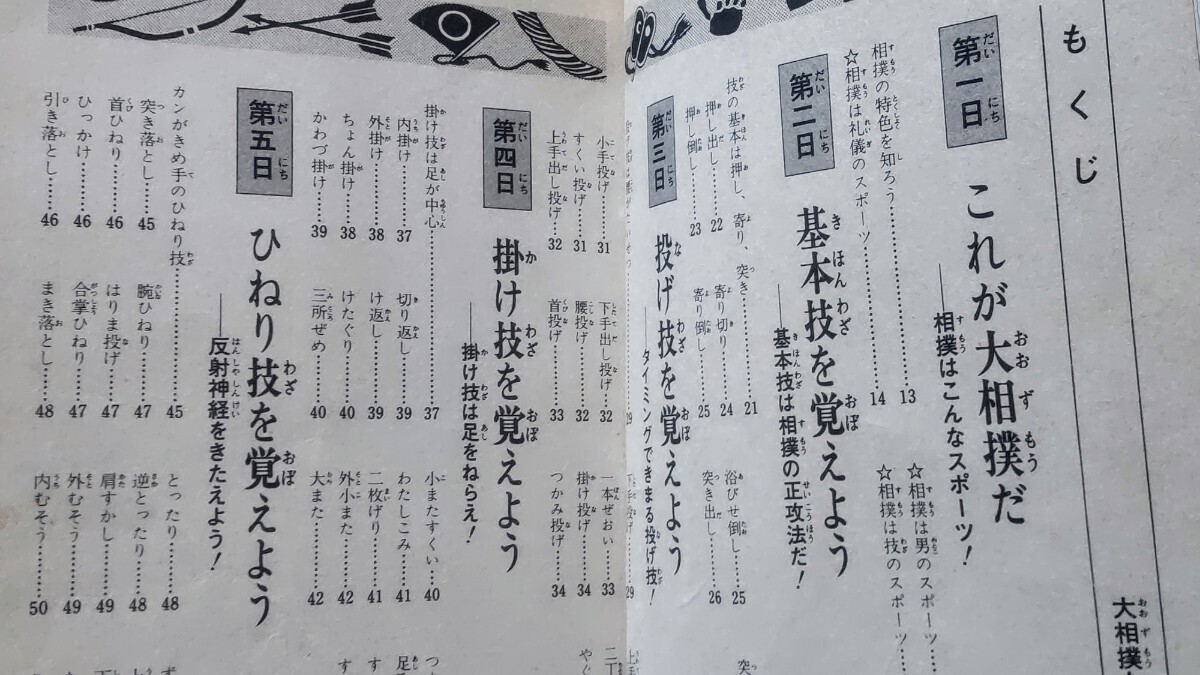 もくじ
大相撲
第一日 これが大相撲だ
――相撲はこんなスポーツ!
相撲の特色を知ろう………13
☆相撲は礼儀のスポーツ………14
☆相撲は男のスポーツ………
☆相撲は技のスポーツ………
第二日 基本技を覚えよう
――基本技は相撲の正攻法だ!
技の基本は押し、寄り、突き………21
押し出し………22
押し倒し………23
寄り切り………24
寄り倒し………25
浴びせ倒し………25
突き出し………26
突
第三日 投げ技を覚えよう
――タイミングできまる投げ技!
29
下手投げ………29
上手
小手投げ………31
すくい投げ………31
上手出し投げ………32
下手出し投げ………32
腰投げ………32
首投げ………33
一本ぜおい………33
掛け投げ………34
つかみ投げ………34
二丁
やぐ
第四日 掛け技を覚えよう
――掛け技は足をねらえ!
掛け技は足が中心………37
内掛け………37
外掛け………38
ちょん掛け………38
かわづ掛け………39
切り返し………39
け返し………39
けたぐり………40
三所ぜめ………40
小またすくい………40
わたしこみ………41
二枚げり………41
外小また………42
大また………42
つ
足
す
す
第五日 ひねり技を覚えよう
――反射神経をきたえよう!
カンがきめ手のひねり技………45
突き落とし………45
首ひねり………46
ひっかけ………46
引き落とし………46
腕ひねり………47
はりま投げ………47
合掌ひねり………47
まき落とし………48
とったり………48
逆とったり………48
肩すかし………49
外むそう………49
内むそう………50
ず